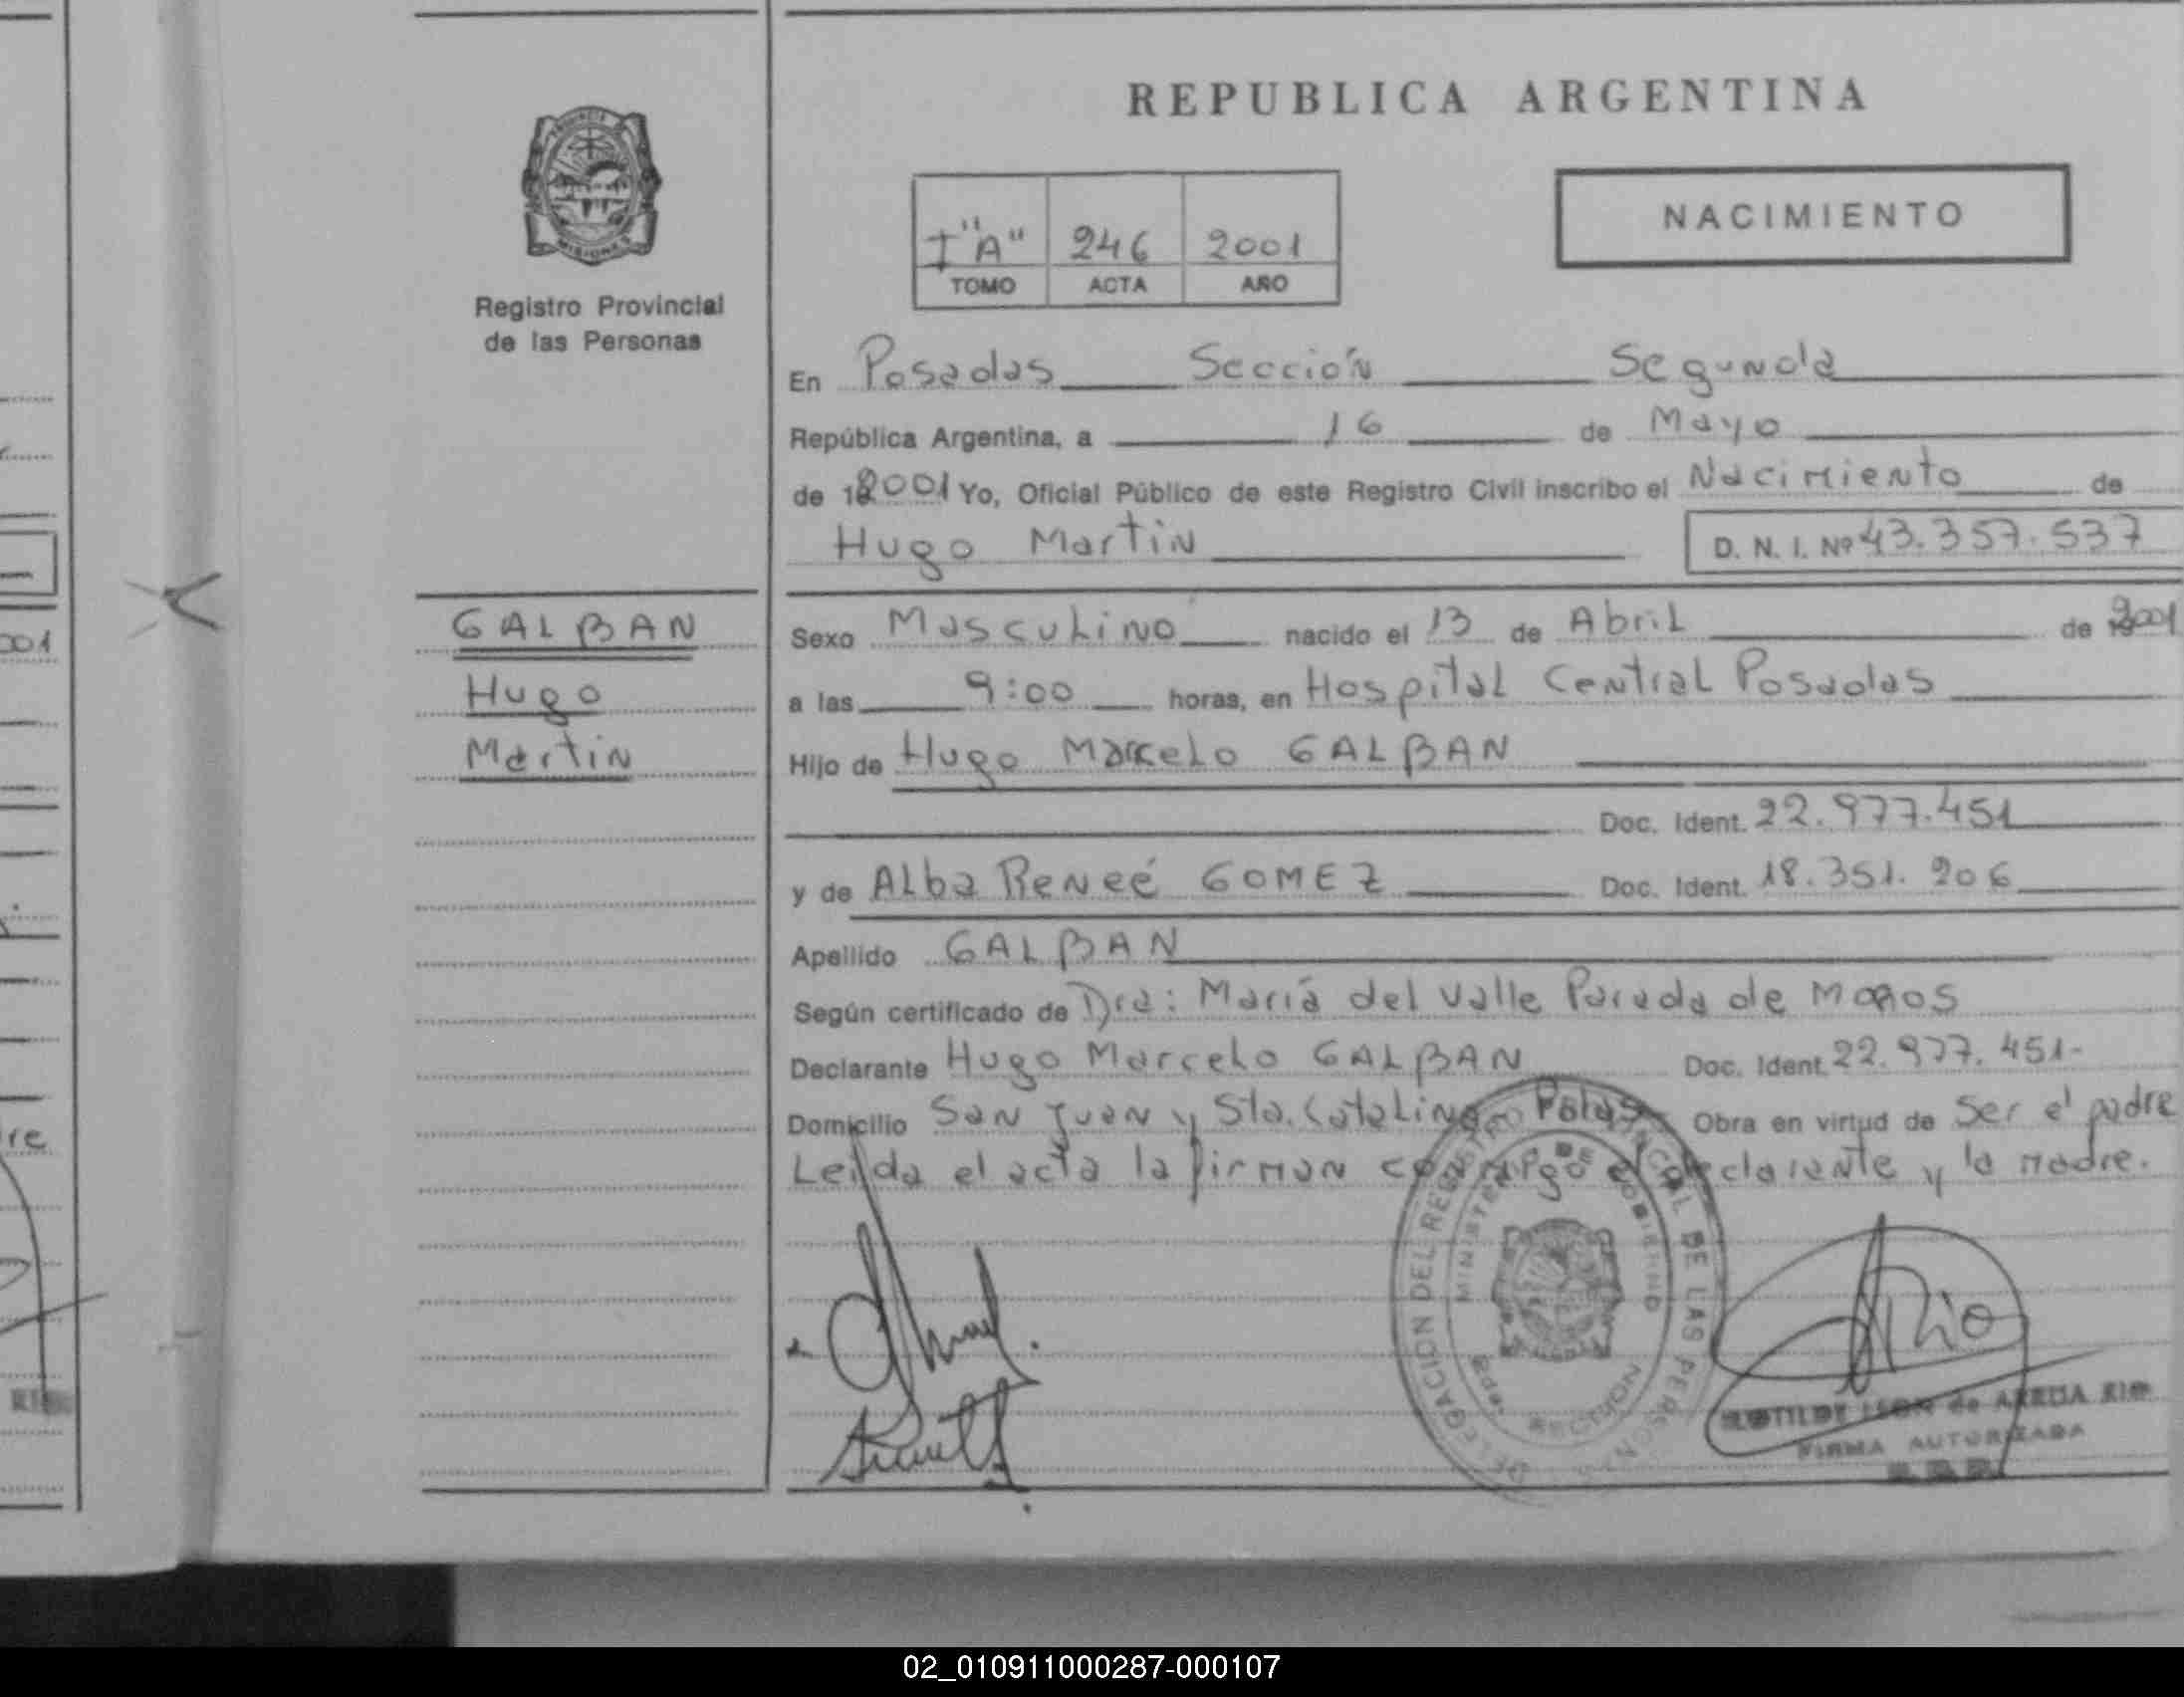 REPUBLICA ARGENTINA
PROVINCIA
MISIONES
Registro Provincial
de las Personas
I "A" 246 2001
TOMO ACTA AÑO
NACIMIENTO
En Posadas Sección Segunda
República Argentina, a 16 de Mayo
de 2001 Yo, Oficial Público de este Registro Civil inscribo el Nacimiento de
Hugo Martin D. N. I. Nº 43.357.537
GALBAN
Hugo
Martin
Sexo Masculino nacido el 13 de Abril de 2001
a las 9:00 horas, en Hospital Central Posadas
Hijo de Hugo Marcelo GALBAN
Doc. Ident. 22.977.451
y de Alba Reneé GOMEZ Doc. Ident. 18.351.206
Apellido GALBAN
Según certificado de Dra: María del Valle Parada de
Declarante Hugo Marcelo GALBAN Doc. Ident. 22.977.451-
Domicilio San Juan y Sta. Catalina Pdas Obra en virtud de Ser el padre
Leida el acta la firman conmigo el declarante y la madre.
DELEGACION DEL REGISTRO PROVINCIAL DE LAS PERSONAS
MINISTERIO DE GOBIERNO
SECCION
Rio
LEON de AREDA RIO
FIRMA AUTORIZADA
001
re
02_010911000287-000107